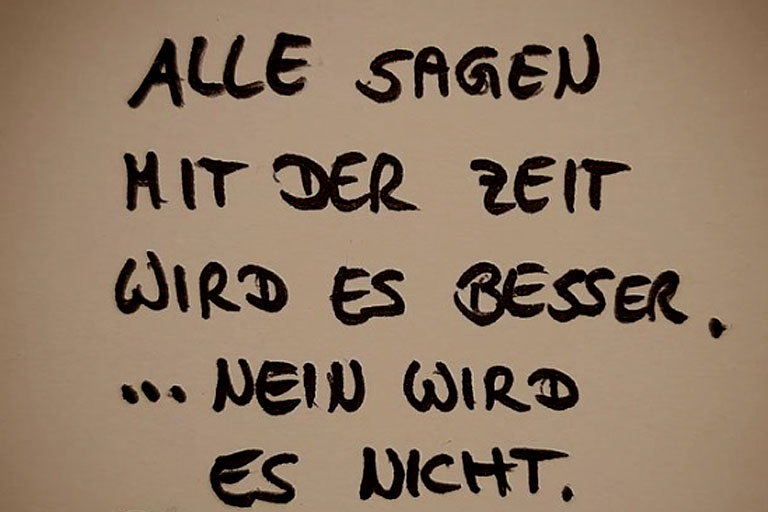 ALLE SAGEN
MIT DER ZEIT
WIRD ES BESSER.
... NEIN WIRD
ES NICHT.